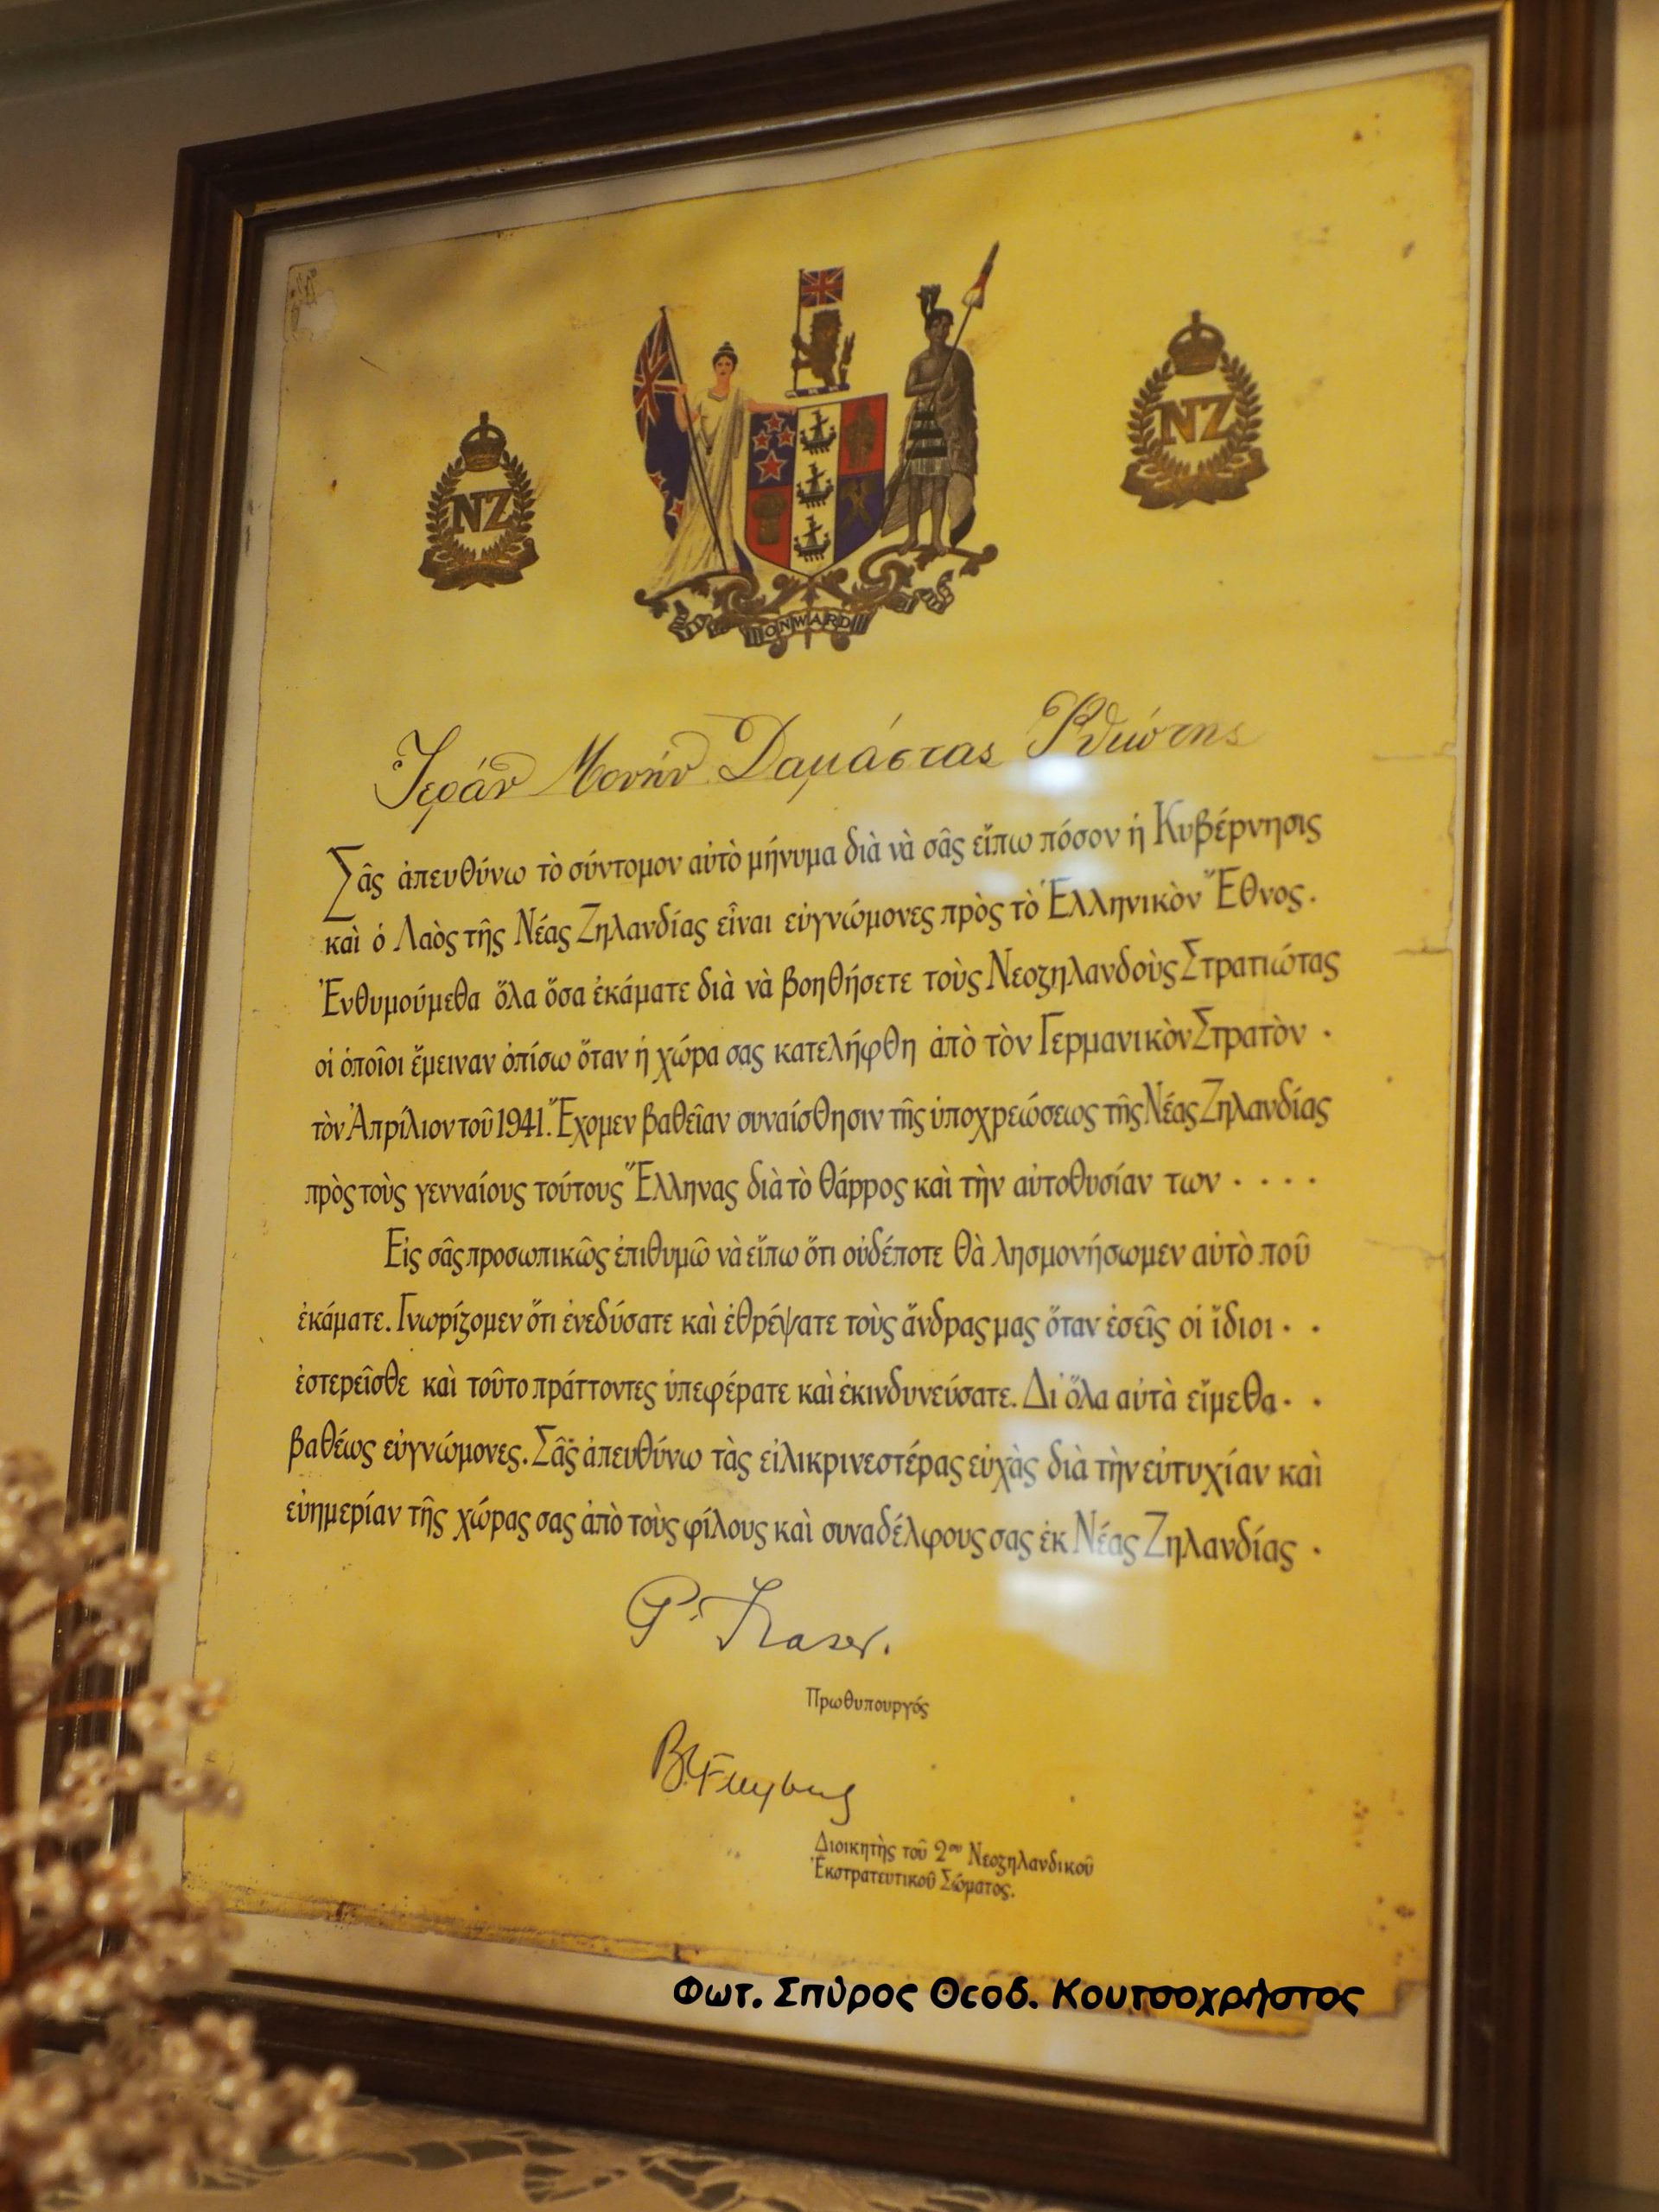 NZ
NZ
ONWARD
Ἱεράν Μονήν Δαμάστας Φθιώτης
Σᾶς ἀπευθύνω τὸ σύντομον αὐτὸ μήνυμα διὰ νὰ σᾶς εἴπω πόσον ἡ Κυβέρνησις
καὶ ὁ Λαὸς τῆς Νέας Ζηλανδίας εἶναι εὐγνώμονες πρὸς τὸ Ἑλληνικὸν Ἔθνος.
Ἐνθυμούμεθα ὅλα ὅσα ἐκάματε διὰ νὰ βοηθήσετε τοὺς Νεοζηλανδοὺς Στρατιώτας
οἱ ὁποῖοι ἔμειναν ὀπίσω ὅταν ἡ χώρα σας κατελήφθη ἀπὸ τὸν Γερμανικὸν Στρατὸν ·
τὸν Ἀπρίλιον τοῦ 1941. Ἔχομεν βαθεῖαν συναίσθησιν τῆς ὑποχρεώσεως τῆς Νέας Ζηλανδίας
πρὸς τοὺς γενναίους τούτους Ἕλληνας διὰ τὸ θάρρος καὶ τὴν αὐτοθυσίαν των · · · ·
Εἰς σᾶς προσωπικῶς ἐπιθυμῶ νὰ εἴπω ὅτι οὐδέποτε θὰ λησμονήσωμεν αὐτὸ ποῦ
ἐκάματε. Γνωρίζομεν ὅτι ἐνεδύσατε καὶ ἐθρέψατε τοὺς ἄνδρας μας ὅταν ἐσεῖς οἱ ἴδιοι · ·
ἐστερεῖσθε καὶ τοῦτο πράττοντες ὑπεφέρατε καὶ ἐκινδυνεύσατε. Δι ὅλα αὐτὰ εἴμεθα · ·
βαθέως εὐγνώμονες. Σᾶς ἀπευθύνω τὰς εἰλικρινεστέρας εὐχὰς διὰ τὴν εὐτυχίαν καὶ
εὐημερίαν τῆς χώρας σας ἀπὸ τοὺς φίλους καὶ συναδέλφους σας ἐκ Νέας Ζηλανδίας ·
P. Fraser.
Πρωθυπουργός
B.C. Freyberg
Διοικητὴς τοῦ 2ου Νεοζηλανδικοῦ
Ἐκστρατευτικοῦ Σώματος.
Φωτ. Σπύρος Θεοδ. Κουτσοχρήστος